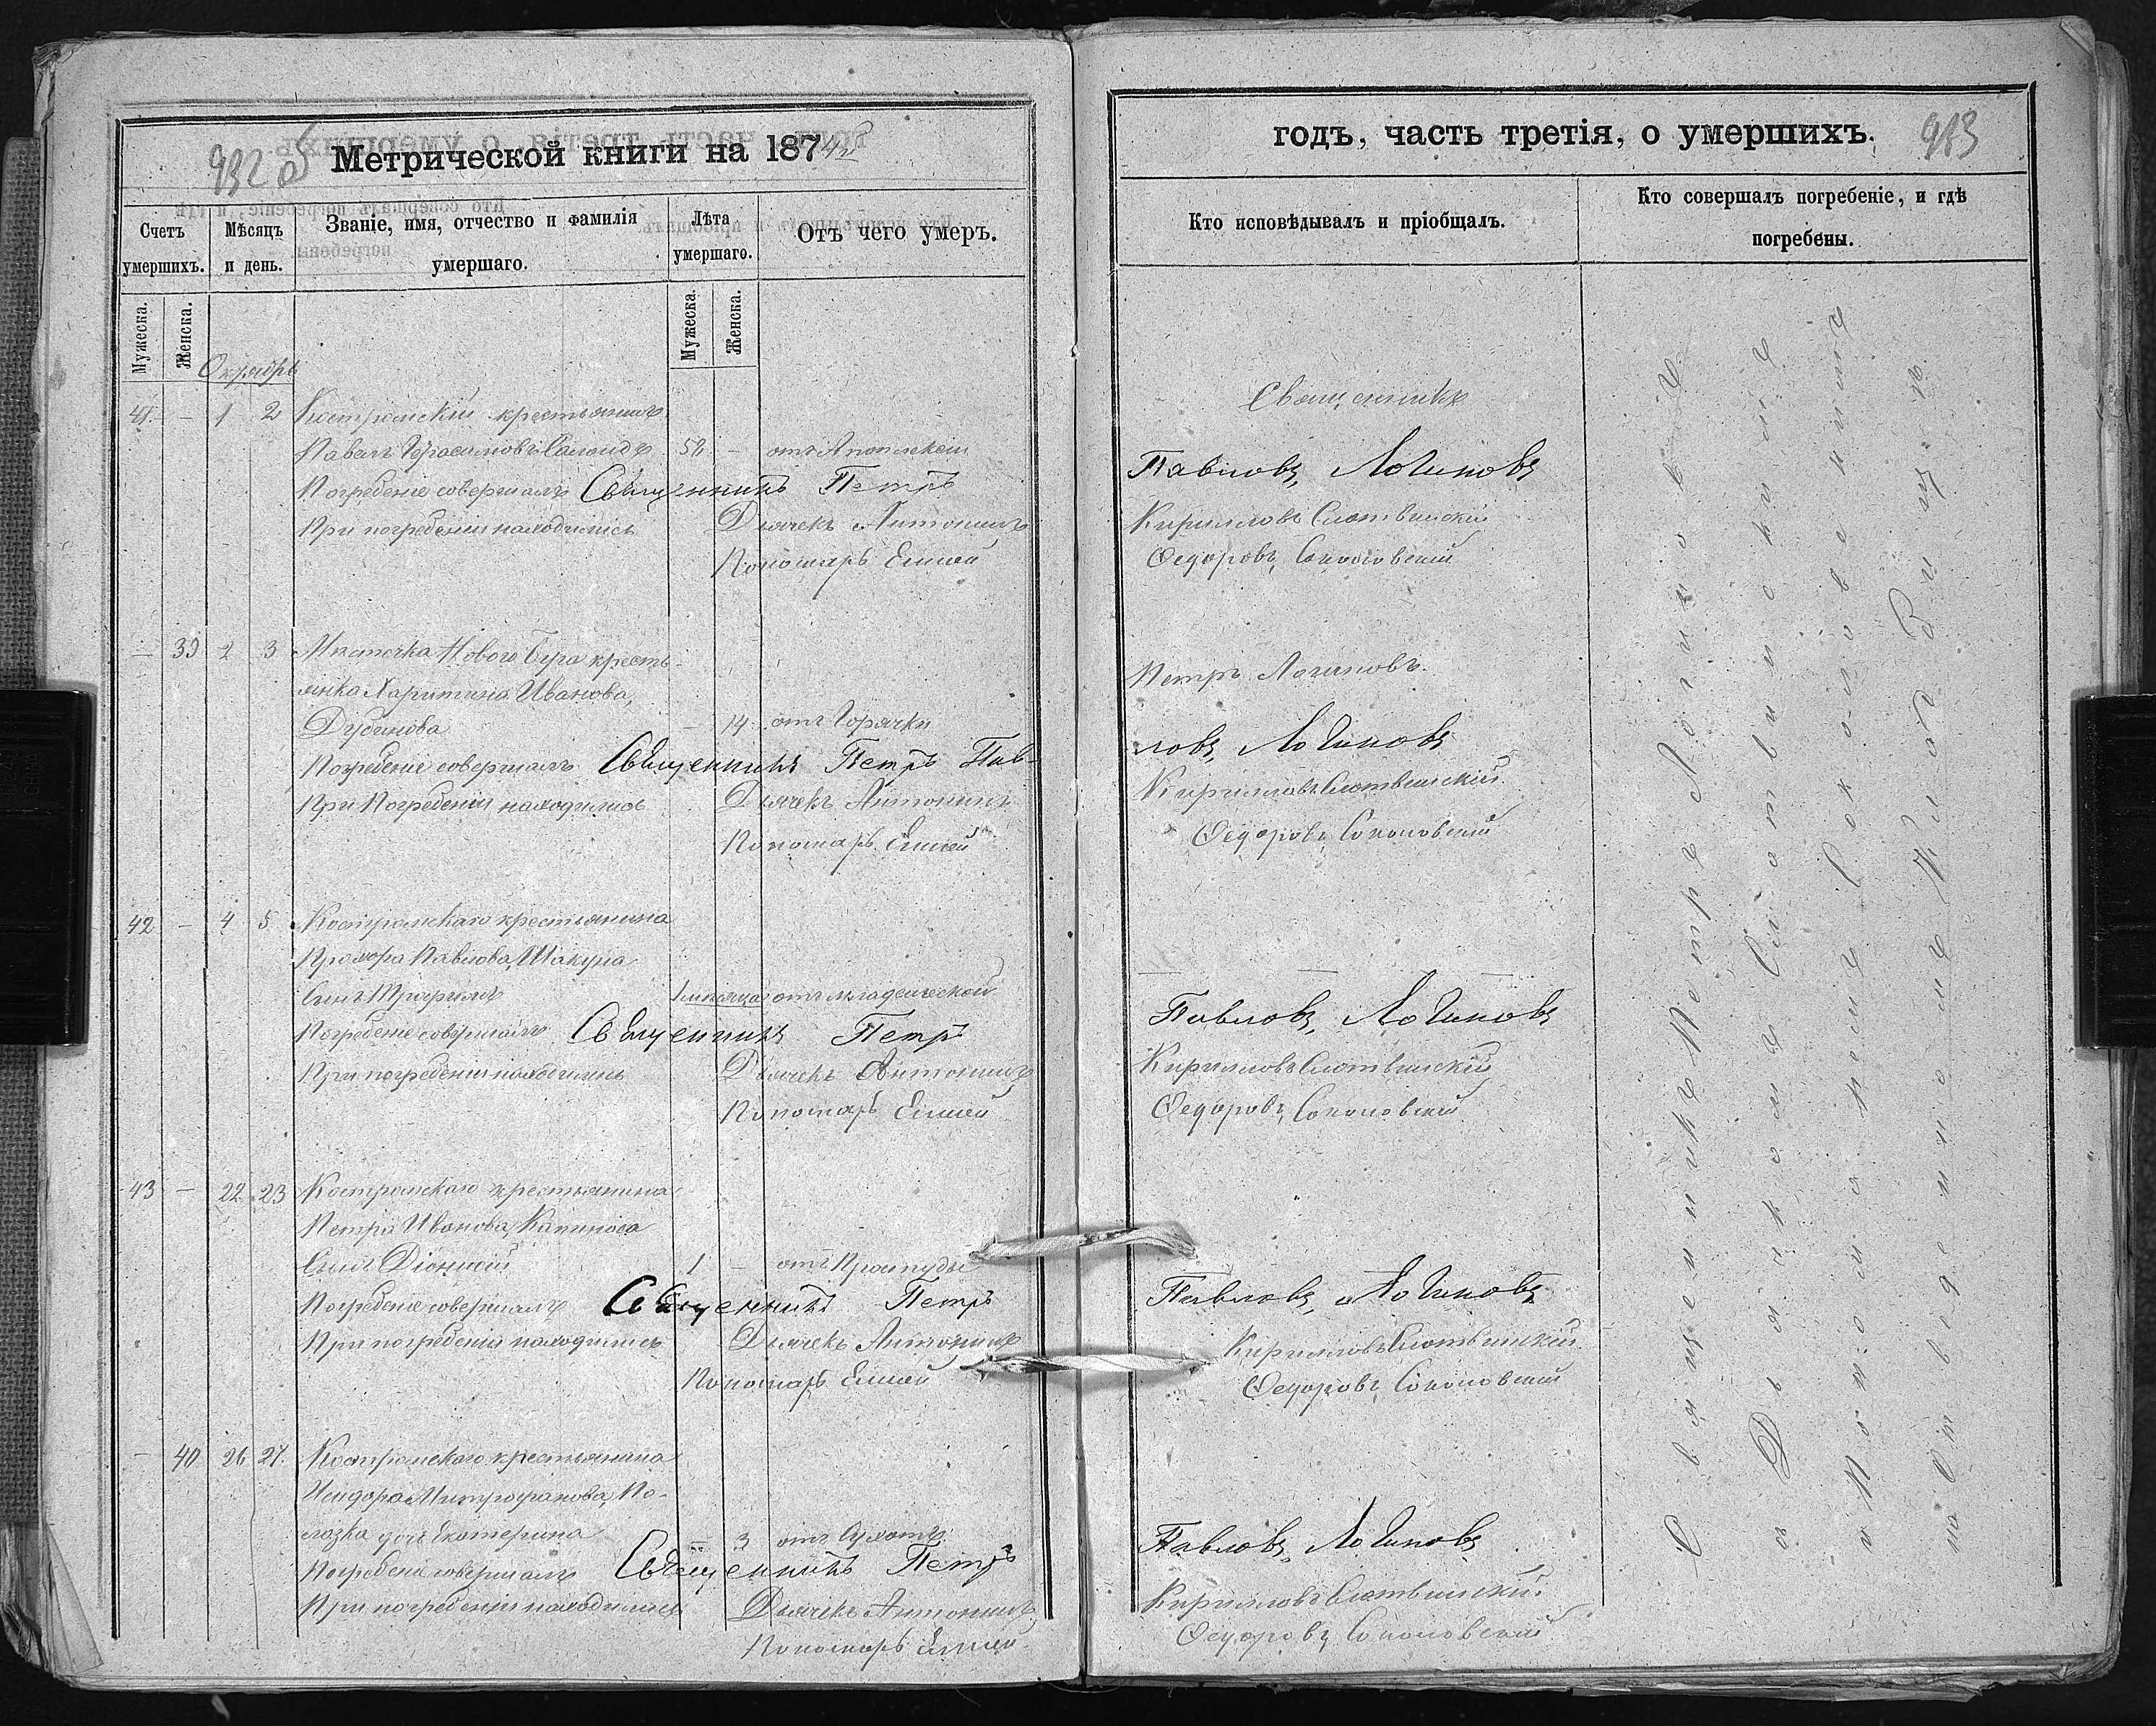 932 об
Метрической книги на 187
Счетъ умершихъ.
Мѣсяцъ и день.
Званіе, имя, отчество и фамилія умершаго.
Лѣта умершаго.
Отъ чего умеръ.
Мужеска.
Женска.
Мужеска.
Женска.
Октябрь
41. – 1 2 Костромскій крестьянинъ
Павелъ Герасимовъ 58 – отъ Апоплексіи
Погребеніе совершалъ Священникъ Петръ
При погребеніи находились Дьячекъ Антонинъ
Пономарь Елисей
– 39 2 3 Мѣстечка Новаго Буга кресть-
янка Харитина Иванова,
– 14 отъ Горячки
Погребеніе совершалъ Священникъ Петръ Пав-
При Погребеніи находились Дьячекъ Антонинъ
Пономарь Елисей
42 – 4 5 Костромскаго крестьянина
Прохора Павлова, Шакуна
Сынъ 1 мѣсяца отъ младенческой
Погребеніе совершалъ Священникъ Петръ
При погребеніи находились Дьячекъ Антонинъ
Пономарь Елисей
43 – 22 23 Костромскаго крестьянина
Петра Иванова, Капиноса
Сынъ Діонисій 1 – отъ Простуды
Погребеніе совершалъ Священникъ Петръ
При погребеніи находились Дьячекъ Антонинъ
Пономарь Елисей
– 40 26 27. Костромскаго крестьянина
Исидора Митрофанова, По-
лозка дочь Екатерина – 3 отъ Сухотъ
Погребеніе совершалъ Священникъ Петръ
При погребеніи находились Дьячекъ Антонинъ
Пономарь Елисей
годъ, часть третія, о умершихъ.
Кто исповѣдывалъ и пріобщалъ.
Кто совершалъ погребеніе, и гдѣ погребены.
Священникъ
Павловъ, Логиновъ
Кирилловъ Слотвинскій
Ѳедоровъ, Соколовскій
Петръ Логиновъ.
ловъ, Логиновъ
Кирилловъ Слотвинскій
Ѳедоровъ, Соколовскій
Павловъ, Логиновъ
Кирилловъ Слотвинскій
Ѳедоровъ, Соколовскій
Павловъ, Логиновъ
Кирилловъ Слотвинскій
Ѳедоровъ, Соколовскій
Павловъ, Логиновъ
Кирилловъ Слотвинскій
Ѳедоровъ, Соколовскій
Священникъ Петръ Логиновъ
съ Дьякомъ Слотвинскимъ
и Пономаремъ Соколовскимъ
на Отведенномъ Кладбищѣ.